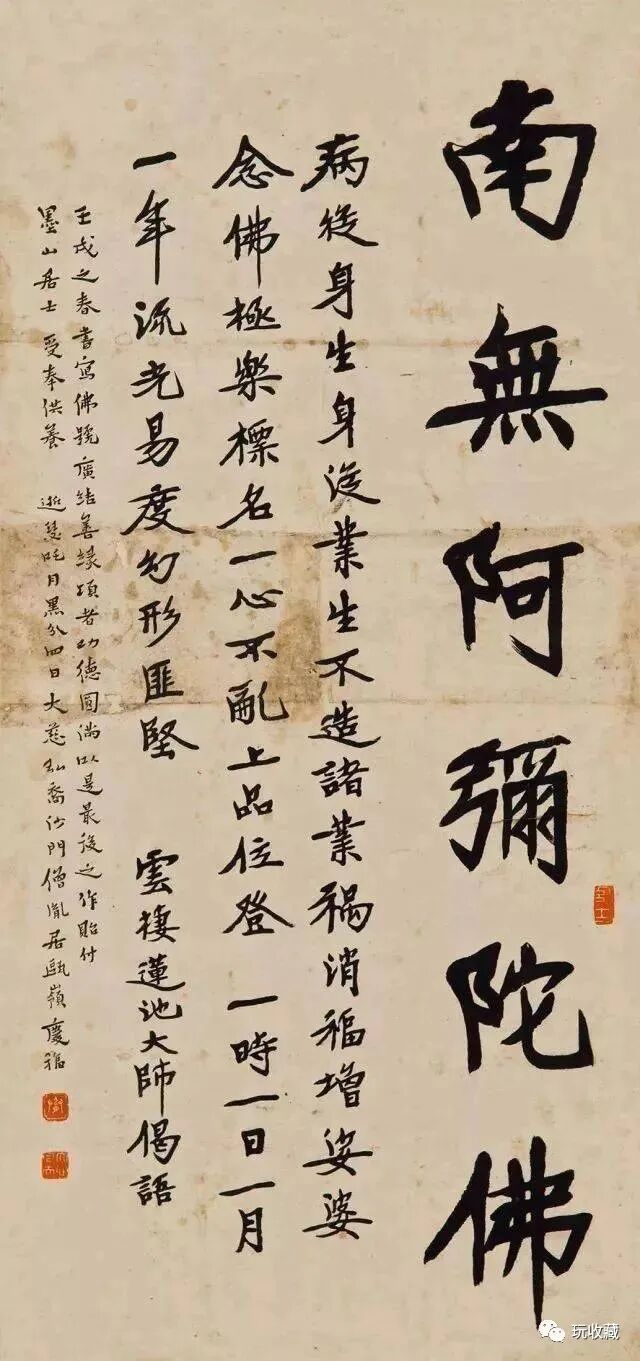 南無阿彌陀佛
病從身生身從業生不造諸業禍消福增娑婆
念佛極樂標名一心不亂上品位登 一時一日一月
一年流光易度幻形匪堅 雲棲蓮池大師偈語
壬戌之春書寫佛號廣結善緣頃者功德圓滿以是最後之作貽付
墨山居士 受奉供養 逝瑟吒月黑分四日大慈弘裔沙門僧胤居甌嶺慶福
玩收藏